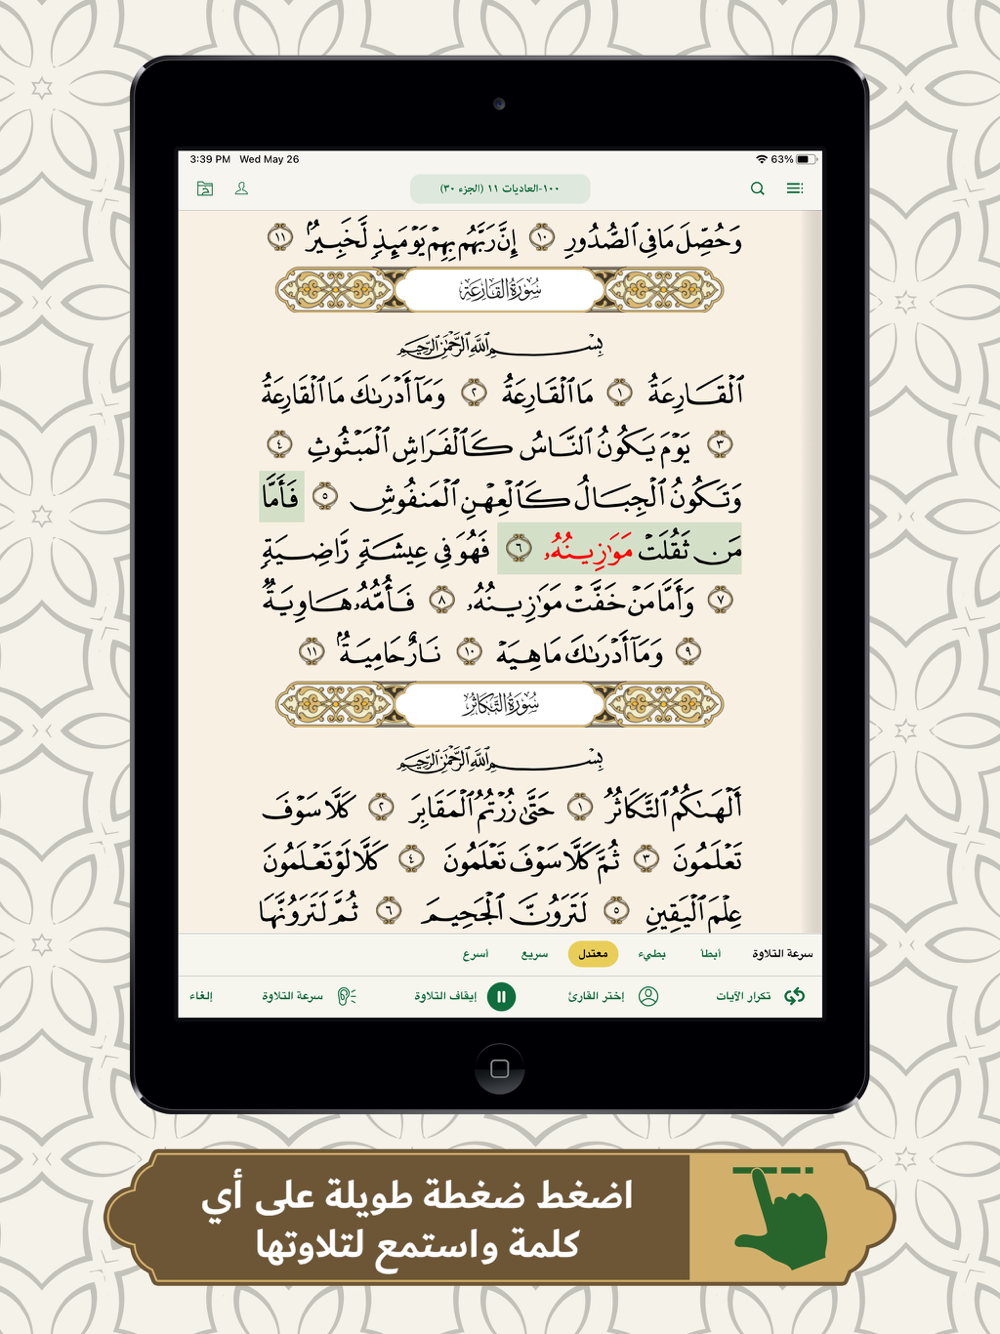 3:39 PM Wed May 26
63%
١٠٠-العاديات ١١ (الجزء ٣٠)
وَحُصِّلَ مَا فِي ٱلصُّدُورِ ١٠ إِنَّ رَبَّهُم بِهِمْ يَوْمَئِذٍ لَّخَبِيرٌۢ ١١
سُورَةُ القَارِعَةِ
بِسْمِ ٱللَّهِ ٱلرَّحْمَٰنِ ٱلرَّحِيمِ
ٱلْقَارِعَةُ ١ مَا ٱلْقَارِعَةُ ٢ وَمَآ أَدْرَىٰكَ مَا ٱلْقَارِعَةُ
٣ يَوْمَ يَكُونُ ٱلنَّاسُ كَٱلْفَرَاشِ ٱلْمَبْثُوثِ ٤
وَتَكُونُ ٱلْجِبَالُ كَٱلْعِهْنِ ٱلْمَنفُوشِ ٥ فَأَمَّا
مَن ثَقُلَتْ مَوَٰزِينُهُۥ ٦ فَهُوَ فِي عِيشَةٍ رَّاضِيَةٍ
٧ وَأَمَّا مَنْ خَفَّتْ مَوَٰزِينُهُۥ ٨ فَأُمُّهُۥ هَاوِيَةٌ
٩ وَمَآ أَدْرَىٰكَ مَا هِيَهْ ١٠ نَارٌ حَامِيَةٌۢ ١١
سُورَةُ التَّكَاثُرِ
بِسْمِ ٱللَّهِ ٱلرَّحْمَٰنِ ٱلرَّحِيمِ
أَلْهَىٰكُمُ ٱلتَّكَاثُرُ ١ حَتَّىٰ زُرْتُمُ ٱلْمَقَابِرَ ٢ كَلَّا سَوْفَ
تَعْلَمُونَ ٣ ثُمَّ كَلَّا سَوْفَ تَعْلَمُونَ ٤ كَلَّا لَوْ تَعْلَمُونَ
عِلْمَ ٱلْيَقِينِ ٥ لَتَرَوُنَّ ٱلْجَحِيمَ ٦ ثُمَّ لَتَرَوُنَّهَا
سرعة التلاوة أبطأ بطيء معتدل سريع أسرع
تكرار الآيات إختر القارئ إيقاف التلاوة سرعة التلاوة إلغاء
اضغط ضغطة طويلة على أي
كلمة واستمع لتلاوتها